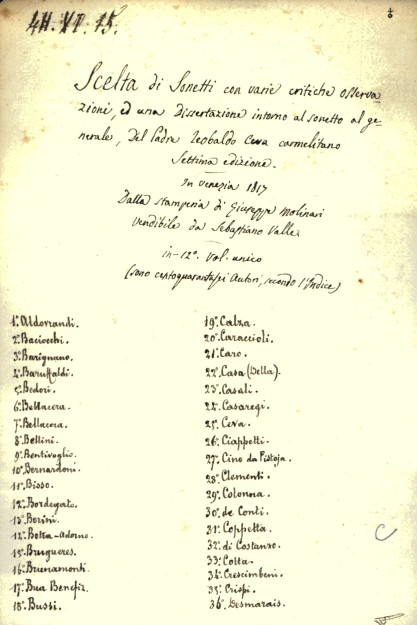 4H. VI. 15.
Scelta di Sonetti con varie critiche osserva=
zioni, ed una Dissertazione intorno al sonetto al ge=
nerale, Del Padre Teobaldo Ceva carmelitano
Settima edizione.
In venezia 1817
Dalla stamperia di Giuseppe Molinari
vendibile da Sebastiano Valle.
in-12°. Vol. unico
(sono centoquarantasei Autori, secondo l'Indice)
1° Aldovrandi.
2° Baciocchi.
3° Barignano.
4° Baruffaldi.
5° Bedori.
6° Bellacera.
7° Bellacora.
8° Bellini.
9° Bentivoglio.
10° Bernardoni.
11° Bisso.
12° Bordegato.
13° Borini.
14° Botta-Adorno.
15° Brugueres.
16° Buonamonti.
17° Bua Benefiz.
18° Bussi.
19° Calza.
20° Caraccioli.
21° Caro.
22° Casa (Della).
23° Casali.
24° Casaregi.
25° Ceva.
26° Ciappetti.
27° Cino da Pistoja.
28° Clementi.
29° Colonna.
30° de Conti.
31° Coppetta.
32° di Costanzo.
33° Cotta.
34° Crescimbeni.
35° Crispi.
36° Desmarais.